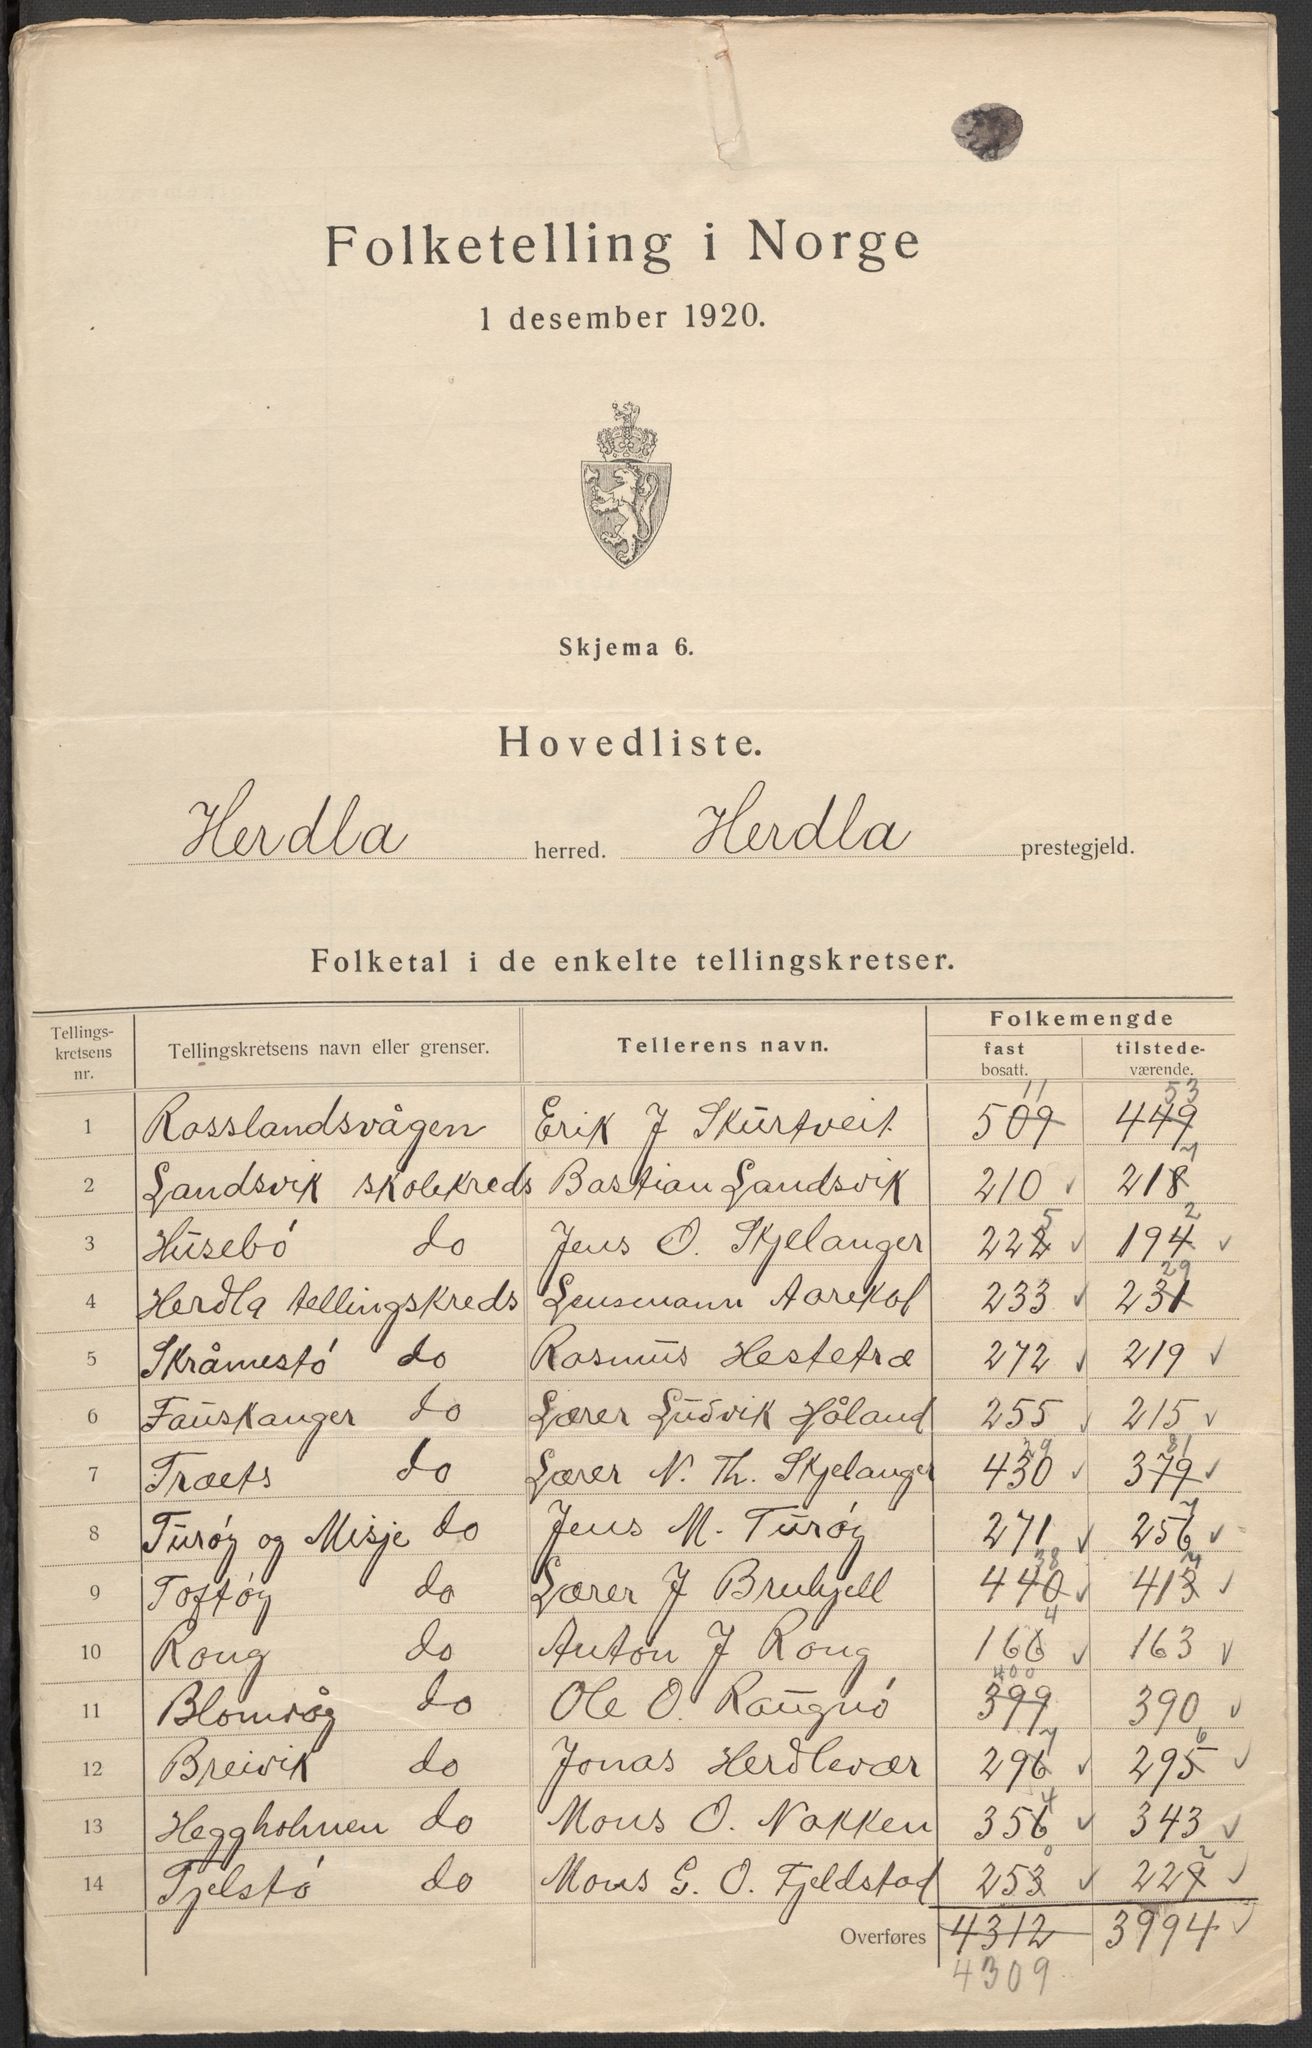 Folketelling i Norge
1 desember 1920.
Skjema 6.
Hovedliste.
Herdla herred. Herdla prestegjeld.
Folketal i de enkelte tellingskretser.
Tellings-kretsens nr. Tellingskretsens navn eller grenser. Tellerens navn. Folkemengde
fast bosatt. tilstede-værende.
11 53
1 Rosslandsvågen Erik J Skurtveit 509 449
7
2 Landsvik skolekreds Bastian Landsvik 210 ✓ 218
5 2
3 Husebó do Jens O. Skjelanger 222 ✓ 194 ✓
29
4 Herdla tellingskreds Lensmann 233 ✓ 231
5 Skråmestó do Rasmus Hestetræ 272 ✓ 219 ✓
6 Fauskanger do Lærer Ludvik Håland 255 ✓ 215 ✓
29 81
7 Træets do Lærer N. Th. Skjelanger 430 ✓ 379 ✓
7
8 Turóy og Misje do Jens M. Turóy 271 ✓ 256 ✓
38
9 Toftóy do Lærer J 440 ✓ 413 ✓
4
10 Rong do Anton J Rong 166 ✓ 163 ✓
400
11 Blomvåg do Ole O. 399 390 ✓
7 6
12 Breivik do Jonas Herdlevær 296 ✓ 295 ✓
4
13 Heggholmen do Mons O. Nakken 356 ✓ 343 ✓
0 2
14 Tjelstó do Mons G. O. Fjeldstad 253 ✓ 229 ✓
Overføres 4312 3994 ✓
4309